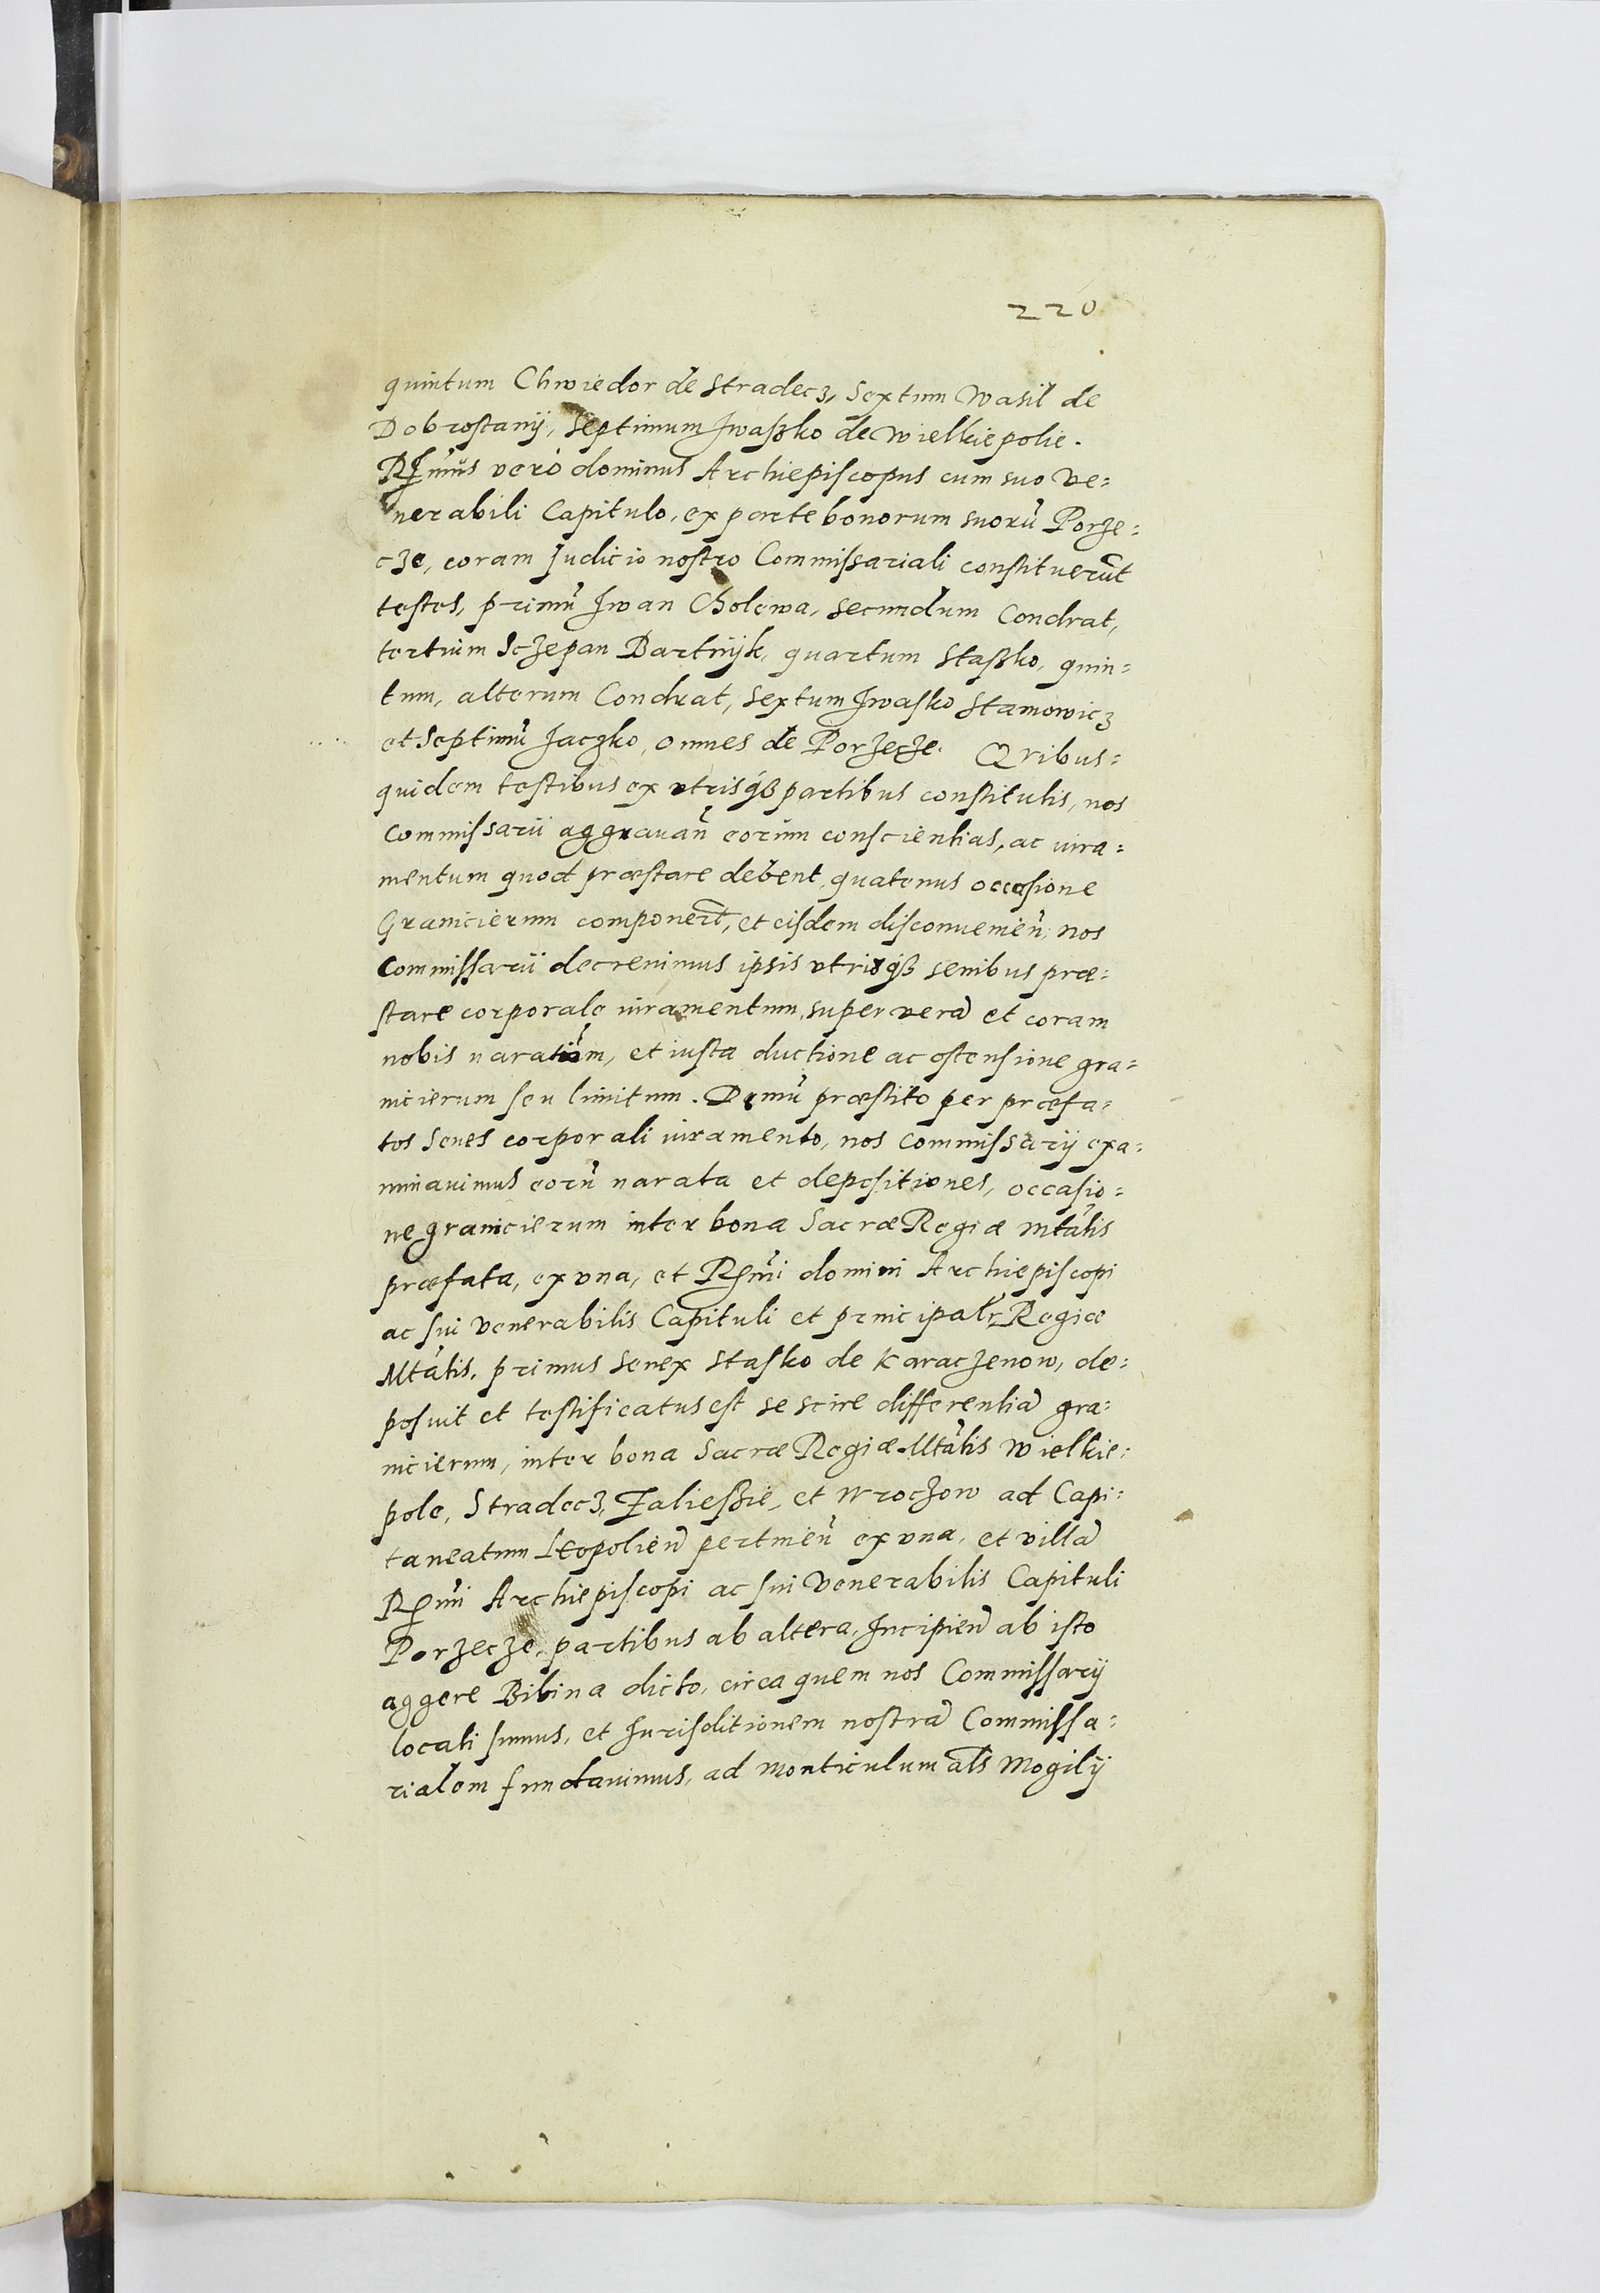 220
quintum Chwiedor de Stradecz, Sextum Wasil de
Dobrostanÿ, Septimum Jwaßko de Wielkiepolie.
Rn̄dmus verò dominus Archiepiscopus cum suo Ve=
nerabili Capitulo, ex parte bonorum suorū Porze=
cze, coram Judicio nostro Commissariali constituerūt
testes, primū Jwan Cholewa, secundum Condrat,
tertium Sczepan Bartnÿk, quartum Staßko, quin=
tum, alterum Condrat, Sextum Jwasko Stanowicz
et Septimū Jaczko, omnes de Porzecze. Qribus=
quidem testibus ex vtrisqß partibus constitutis, nos
Commissarii aggrauan̄ eorum conscientias, ac iura=
mentum quod præstare debent, quatenus occasione
Granicierum componer̄t, et eisdem disconuenien̄, nos
Commissarii decreuimus ipsis vtrisqß senibus præ=
stare corporale iuramentum, super verā et coram
nobis naratiōm, et iusta ductione ac ostensione gra=
nicierum seu limitum. Demū præstito per præfa=
tos Senes corporali iuramento, nos Commissarij exa=
minauimus eorū narata et depositiones, occasio=
ne granicierum inter bona Sacræ Regiæ Mtātis
præfata, ex vna, et Rn̄di domini Archiepiscopi
ac sui venerabilis Capituli et principalr̄ Regiæ
Mtātis. primus Senex Stasko de Karaczenow, de=
posuit et testificatus est se scire differentiā gra=
nicierum, inter bona Sacræ Regiæ Mtātis Wielkie=
pole, Stradecz, Zaließie, et Wroczow ad Capi=
taneatum Leopolien̄ pertinen̄ ex vna, et villā
Rn̄di Archiepiscopi ac sui Venerabilis Capituli
Porzecze, partibus ab altera, Incipien̄ ab isto
aggere Bibina dicto, circa quem nos Commissarij
locati sumus, et Jurisditionem nostrā Commissa=
rialem fundauimus, ad monticulum al̄s Mogilÿ